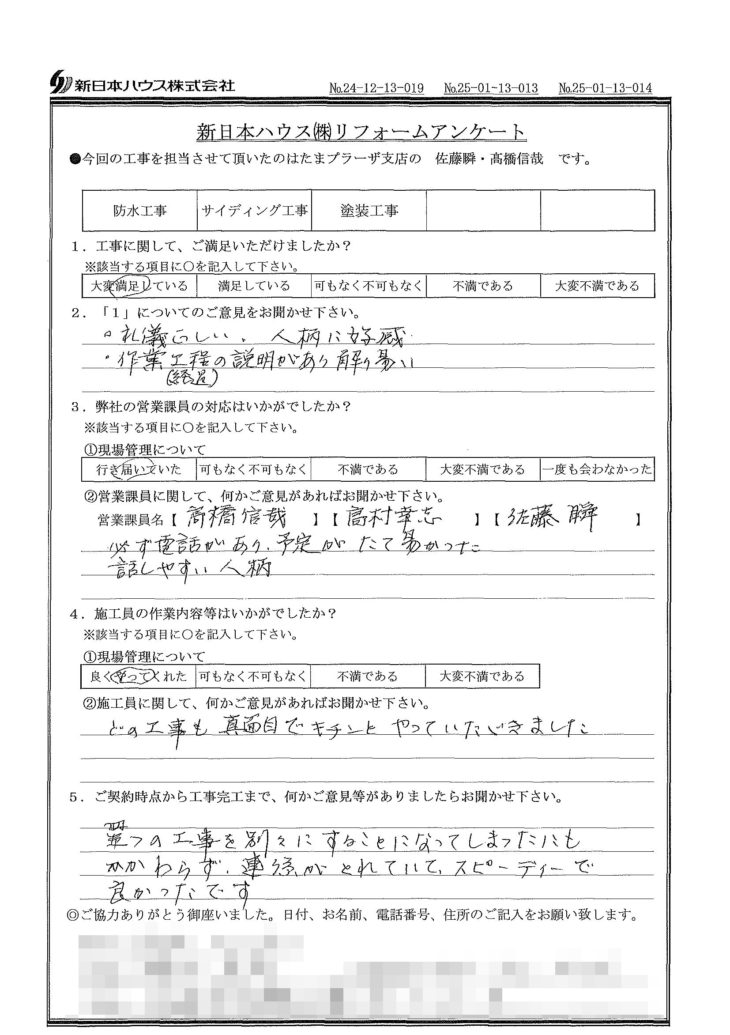 新日本ハウス株式会社
№24-12-13-019 №25-01-13-013 №25-01-13-014
新日本ハウス㈱リフォームアンケート
●今回の工事を担当させて頂いたのはたまプラーザ支店の 佐藤瞬・髙橋信哉 です。
防水工事 サイディング工事 塗装工事
1．工事に関して、ご満足いただけましたか？
※該当する項目に○を記入して下さい。
大変満足している 満足している 可もなく不可もなく 不満である 大変不満である
2．「1」についてのご意見をお聞かせ下さい。
・礼儀正しい。人柄に好感
・作業工程の説明があり解り易い
(経過)
3．弊社の営業課員の対応はいかがでしたか？
※該当する項目に○を記入して下さい。
①現場管理について
行き届いていた 可もなく不可もなく 不満である 大変不満である 一度も会わなかった
②営業課員に関して、何かご意見があればお聞かせ下さい。
営業課員名【 髙橋信哉 】【 高村幸志 】【 佐藤 瞬 】
必ず電話があり、予定がたて易かった
話しやすい人柄
4．施工員の作業内容等はいかがでしたか？
※該当する項目に○を記入して下さい。
①現場管理について
良くやってくれた 可もなく不可もなく 不満である 大変不満である
②施工員に関して、何かご意見があればお聞かせ下さい。
どの工事も真面目でキチンとやっていただきました
5．ご契約時点から工事完工まで、何かご意見等がありましたらお聞かせ下さい。
つの工事を別々にすることになってしまったにも
かかわらず、連絡がとれていて、スピーディーで
良かったです
◎ご協力ありがとう御座いました。日付、お名前、電話番号、住所のご記入をお願い致します。